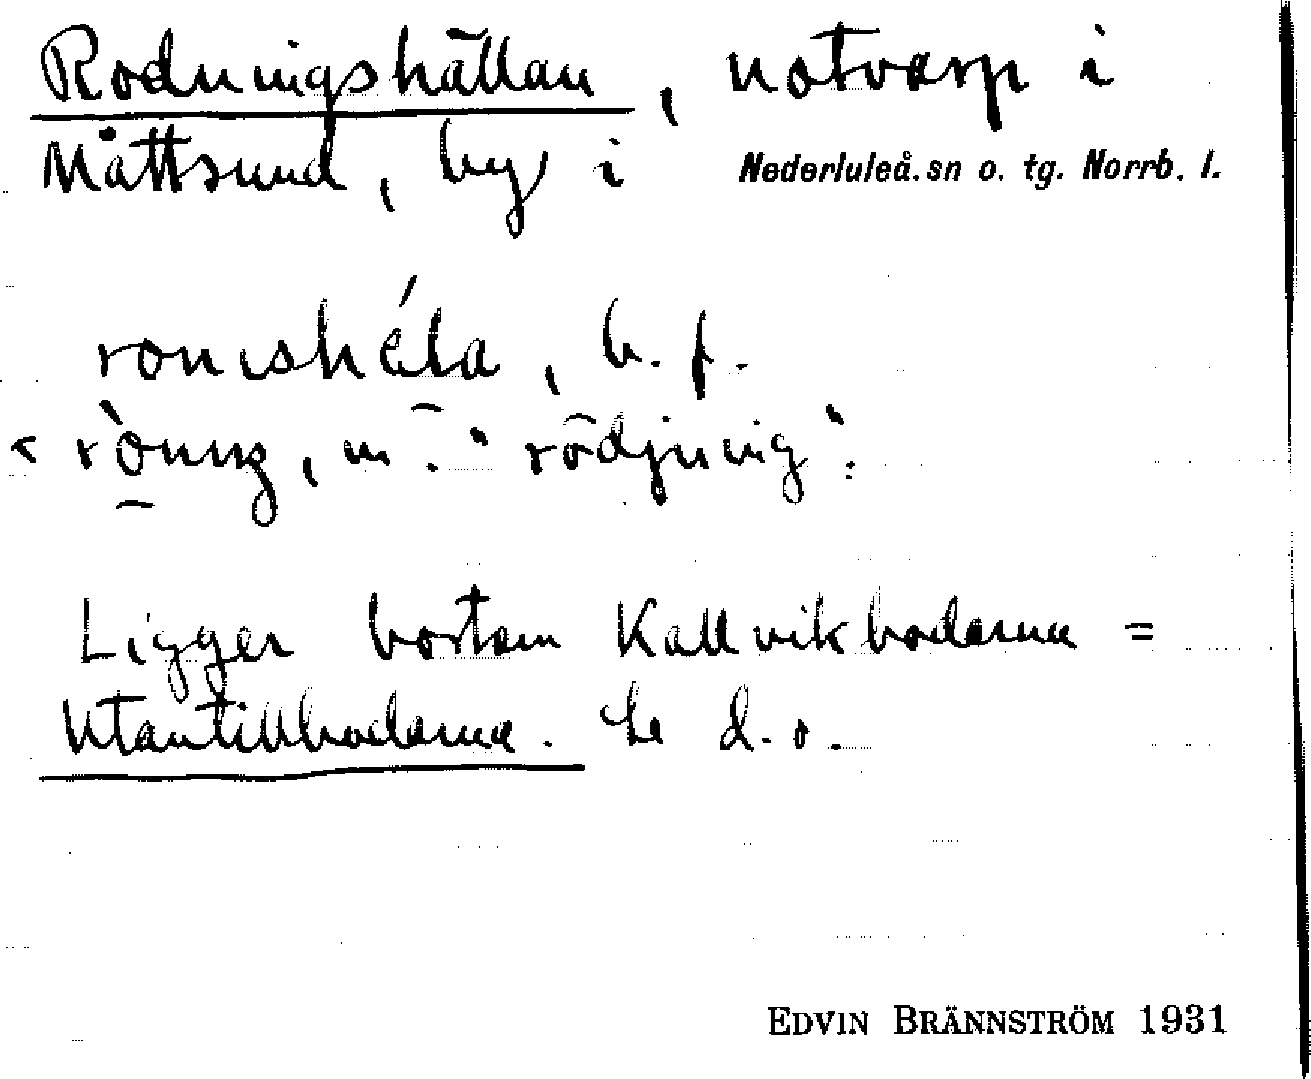 Rodningshällan, notvarp i
Måttsund, by i Nederluleå.sn o. tg. Norrb. l.
ronıshéla, b. f.
< rònıng, m. "rödjning".
Ligger bortom Kallvikbodarna =
Utantillbodarna. Se d. o.
EDVIN BRÄNNSTRÖM 1931